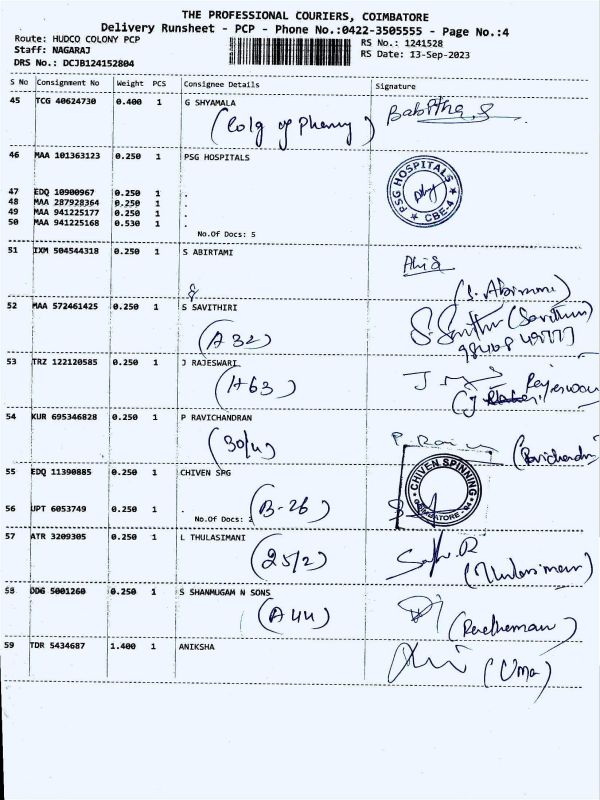 THE PROFESSIONAL COURIERS, COIMBATORE
Delivery Runsheet - PCP - Phone No.:0422-3505555 - Page No.:4
Route: HUDCO COLONY PCP
RS No.: 1241528
Staff: NAGARAJ
RS Date: 13-Sep-2023
DRS No.: DCJB124152804
S No Consignment No Weight PCS Consignee Details Signature
45 TCG 40624730 0.400 1 G SHYAMALA
46 MAA 101363123 0.250 1 PSG HOSPITALS
PSG HOSPITALS CBE-4
47 EDQ 10900967 0.250 1 .
48 MAA 287928364 0.250 1 .
49 MAA 941225177 0.250 1 .
50 MAA 941225168 0.530 1 .
No.Of Docs: 5
51 IXM 504544318 0.250 1 S ABIRTAMI
52 MAA 572461425 0.250 1 S SAVITHIRI
(A 32)
53 TRZ 122120585 0.250 1 J RAJESWARI
(A63)
54 KUR 695346828 0.250 1 P RAVICHANDRAN
(30/4)
55 EDQ 11390885 0.250 1 CHIVEN SPG
CHIVEN SPINNING COIMBATORE
(B-26)
56 UPT 6053749 0.250 1 .
No.Of Docs: 2
57 ATR 3209305 0.250 1 L THULASIMANI
(25/2)
(Thulasimani)
58 DDG 5001260 0.250 1 S SHANMUGAM N SONS
(A 44)
59 TDR 5434687 1.400 1 ANIKSHA
(Uma)